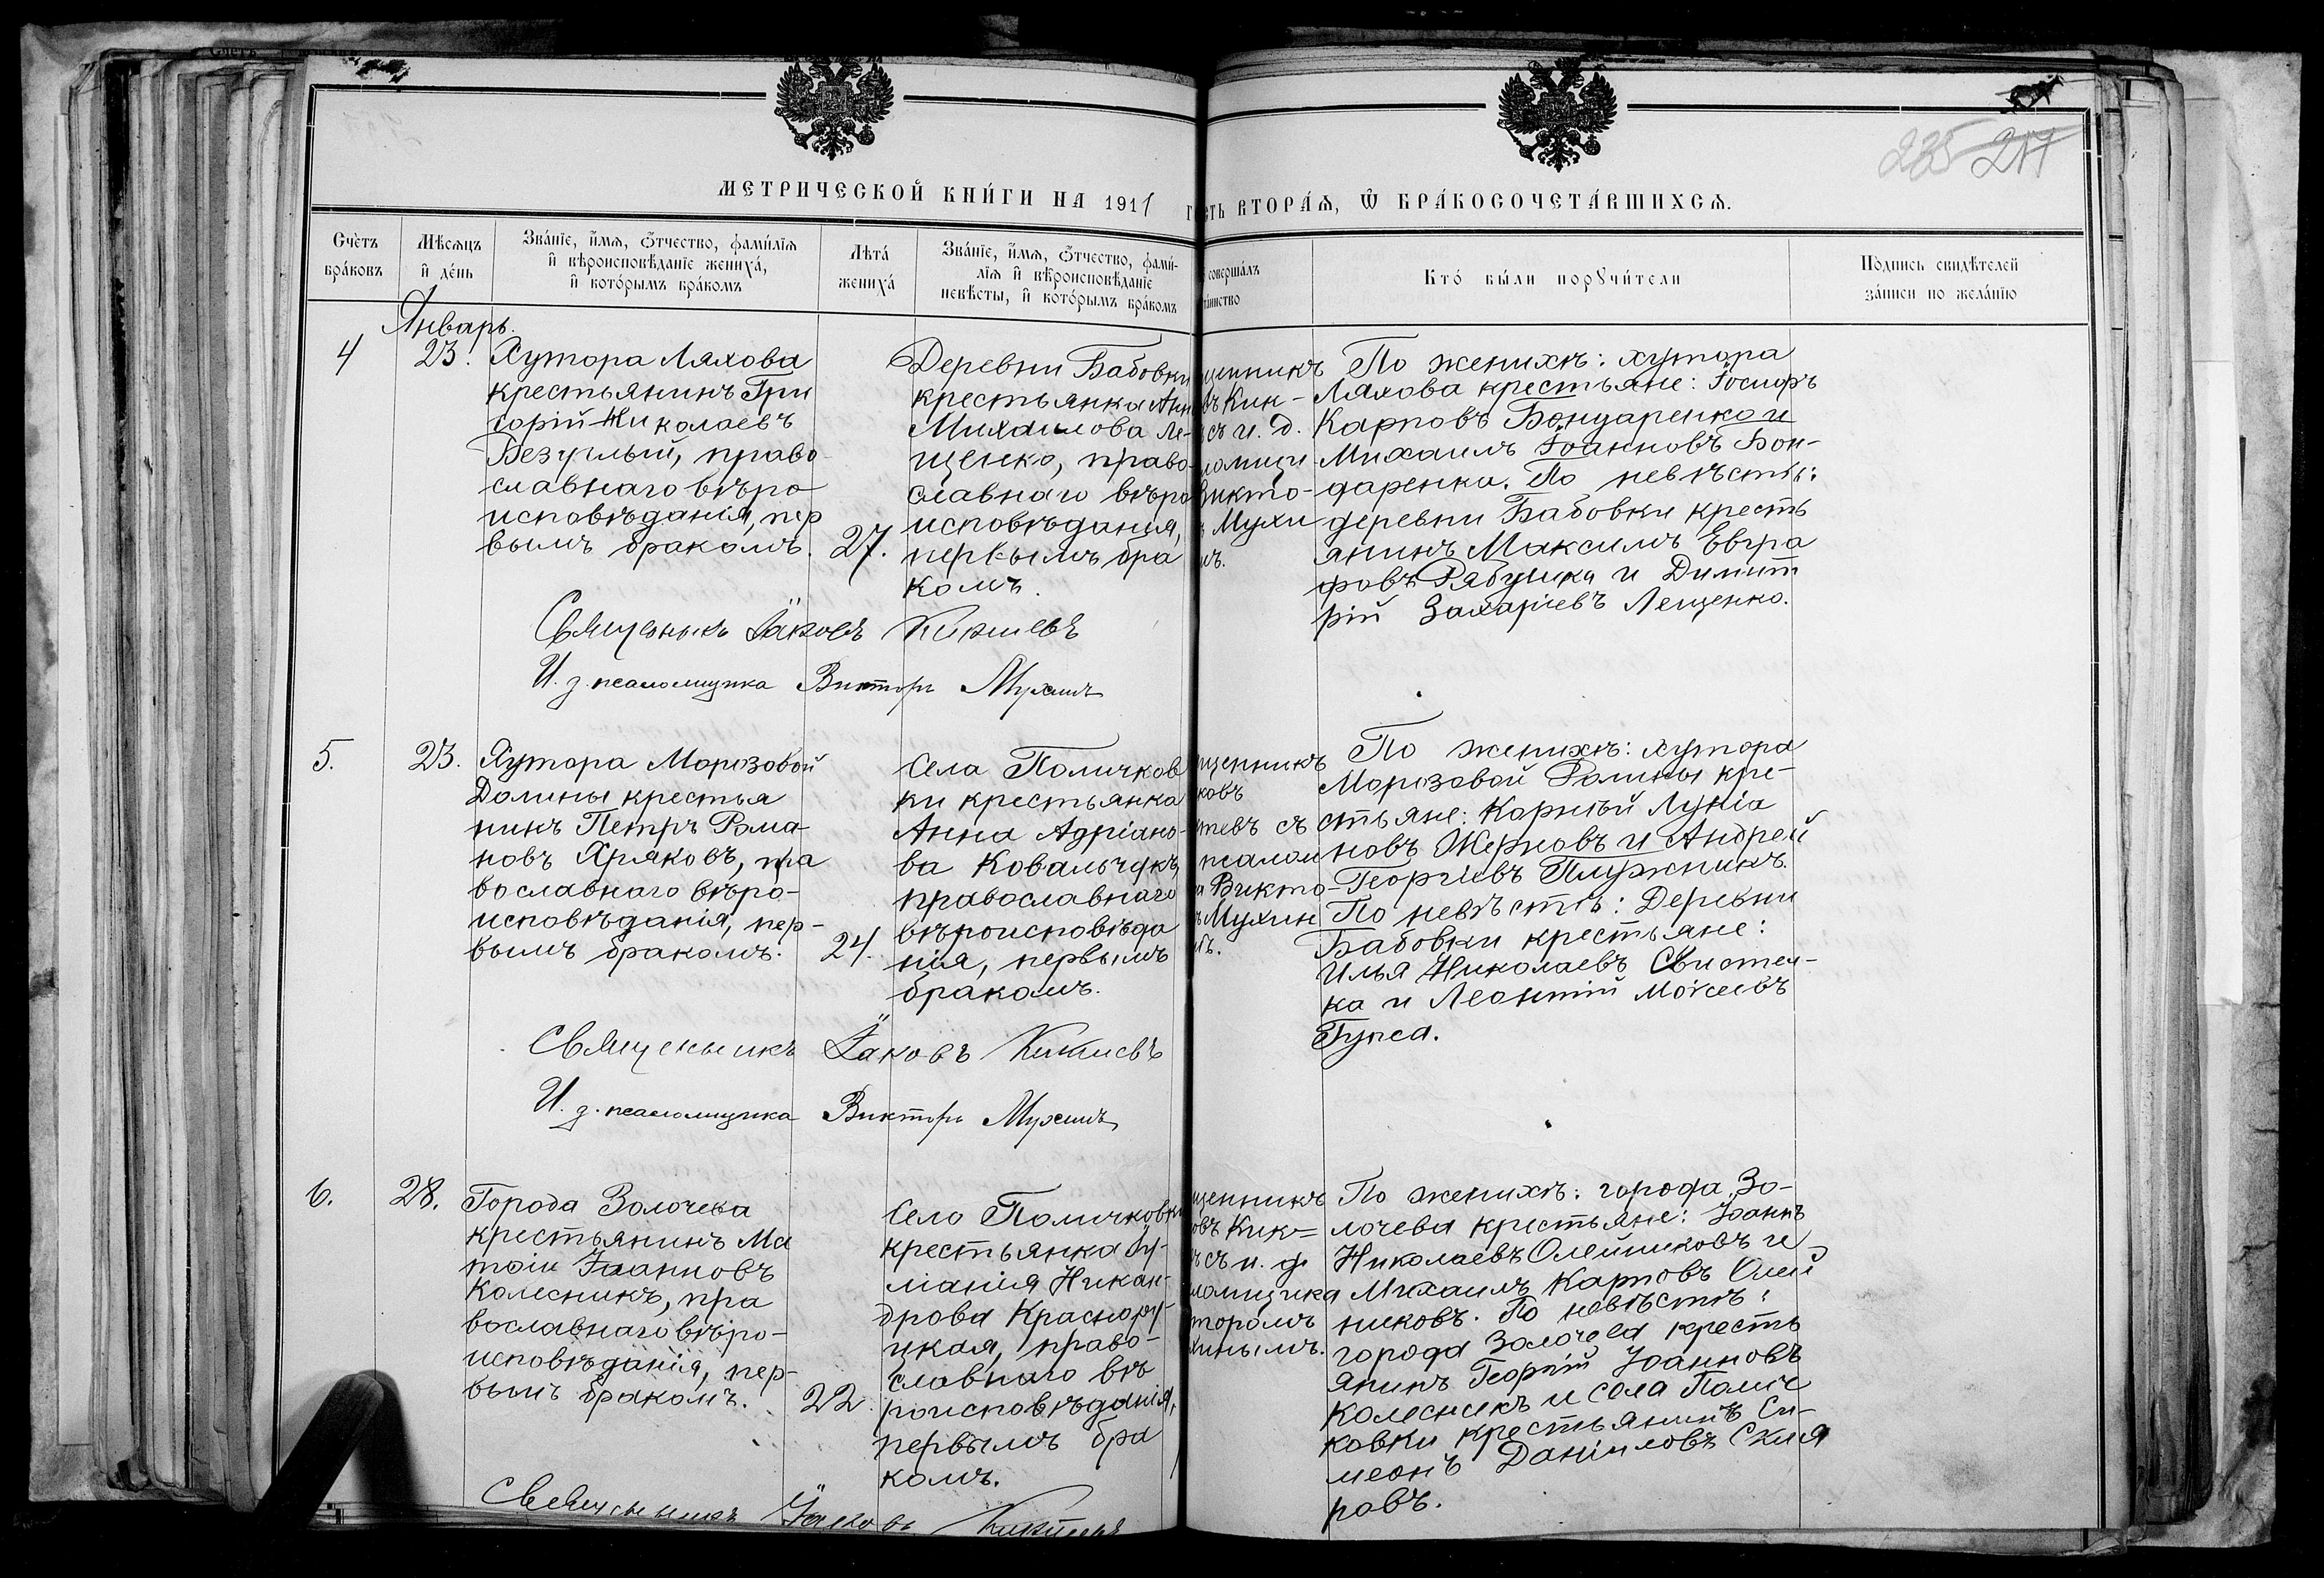 МЕТРИЧЕСКОЙ КНИ́ГИ НА 1911
ЧАСТЬ ВТОРА́Ѧ, Ѿ БРА́КОСОЧЕТА́ВШИХСѦ.
235 217
Сче́тъ бра́ковъ
Мѣ́сѧцъ и҆ де́нь
Зва́нїе, и҆́мѧ, ѻ҆́тчество, фами́лїѧ
и҆ вѣроисповѣ́данїе жениха́,
и҆ кото́рымъ бра́комъ
Лѣта́ жениха́
Зва́нїе, и҆́мѧ, ѻ҆́тчество, фами́-
лїѧ и҆ вѣроисповѣ́данїе
невѣ́сты, и҆ кото́рымъ бра́комъ
соверша́лъ
та́инство
Кто́ бы́ли порꙋчи́тели
По́дпись свидѣ́телей
за́писи по жела́нїю
Январь.
4
23.
Хутора Ляхова
крестьянинъ Гри
горій Николаевъ
Безуглый, право
славнаго вѣро
исповѣданія, пер
вымъ бракомъ.
27.
Деревни Бабовки
крестьянка Анн
Михаилова Ле-
щенко, право-
славнаго вѣро
исповѣданія,
первымъ бра
комъ.
щенникъ
въ Кик-
съ и. д.
ломщи
Викто-
Мухи
мъ.
По женихѣ: хутора
Ляхова крестьяне: Іосифъ
Карповъ Бондаренко и
Михаилъ Іоанновъ Бон-
даренко. По невѣстѣ:
деревни Бабовки кресть
янинъ Максимъ Евгра
фовъ Рябушка и Димит
рій Захаріевъ Лещенко.
Священникъ Іаковъ
И. д. псаломщика Викторъ Мухинъ
5.
23.
Хутора Морозовой
Долины крестья
нинъ Петръ Рома-
новъ Хряковъ, пра
вославнаго вѣро-
исповѣданія, пер-
вымъ бракомъ.
24.
Села Поличков
ки крестьянка
Анна Адріано-
ва Ковальчукъ,
православнаго
вѣроисповѣда
нія, первымъ
бракомъ.
щенникъ
ковъ
тевъ съ
псалом
Викто-
Мухин
мъ.
По женихѣ: хутора
Морозовой Долины кре-
стьяне: Корнѣй Лукіа
новъ Жерновъ и Андрей
Георгіевъ Плужникъ.
По невѣстѣ: Деревни
Бабовки крестьяне:
Илья Николаевъ Свистел-
ка и Леонтій Моѵсеевъ
Священникъ Іаковъ
И. д. псаломщика Викторъ Мухинъ
6.
28.
Города Золочева
крестьянинъ Ма
тѳій Іоанновъ
Колесникъ, пра
вославнаго вѣро-
исповѣданія, пер-
вымъ бракомъ.
22.
Село Поличковки
крестьянка Іу-
ліанія Никан-
дрова Краснору-
цкая, право-
славнаго вѣ
роисповѣданія,
первымъ бра
комъ.
щенникъ
овъ Кик=
съ и. д.
ломщика
торомъ
хинымъ.
По женихѣ: города Зо-
лочева крестьяне: Іоаннъ
Николаевъ Олейниковъ и
Михаилъ Карповъ Олей
никовъ. По невѣстѣ:
города Золочева кресть
янинъ Георгій Іоанновъ
Колесникъ и села Поличе
ковки крестьянинъ Си-
меонъ Даніиловъ Скля
ровъ.
Священникъ Іаковъ